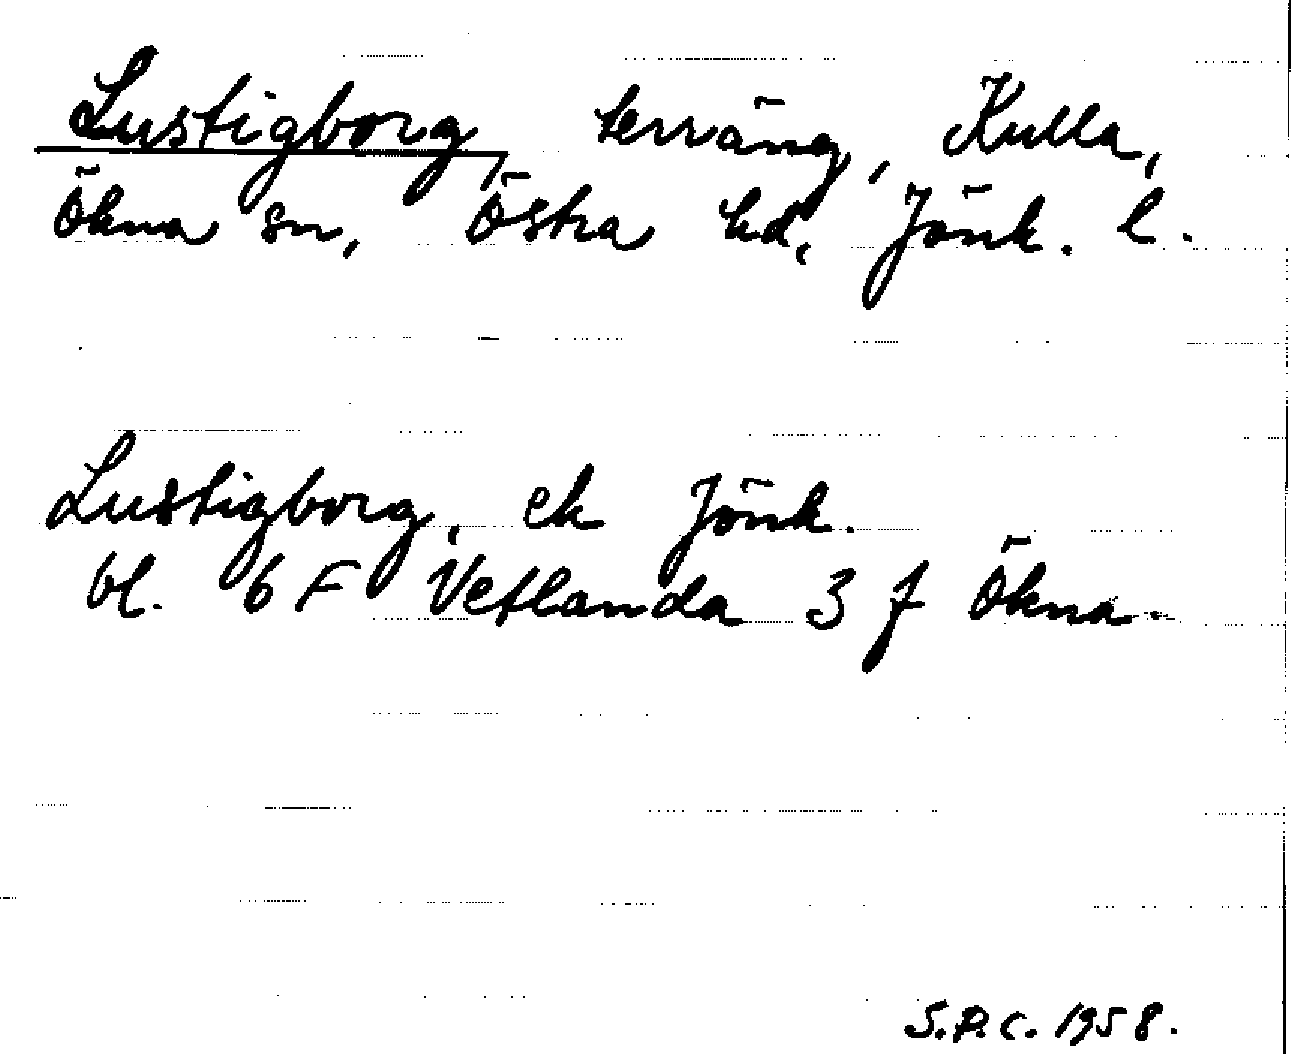 Lustigborg, terräng, Kulla,
Ökna sn, Östra hd, Jönk. l.
Lustigborg, ek Jönk.
bl. 6 F Vetlanda 3 f Ökna
S.P.C. 1958.